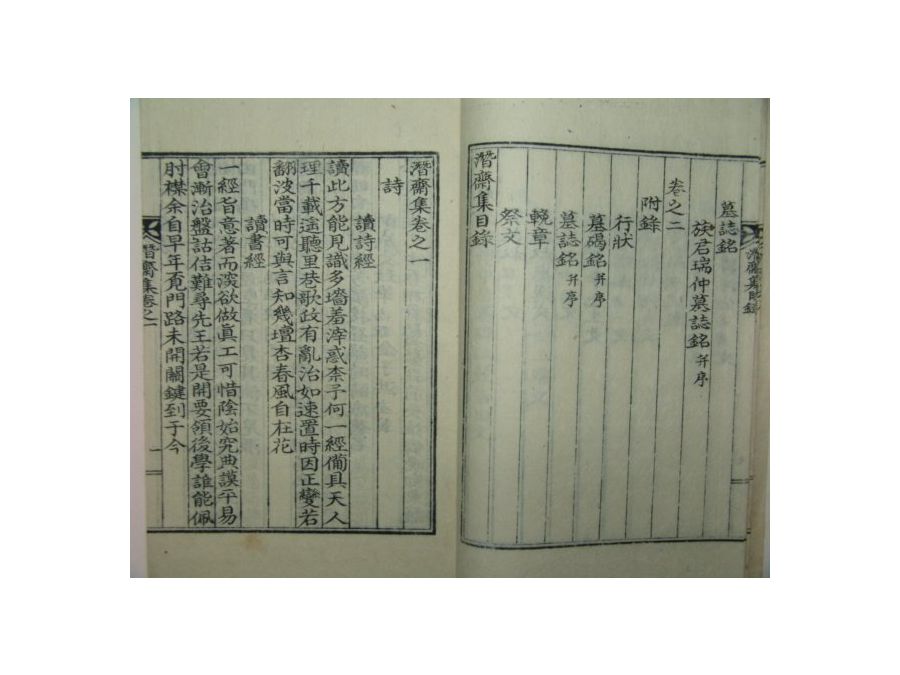 潛齋集目錄
墓誌銘
族君瑞仲墓誌銘 并序
卷之二
附錄
行狀
墓碣銘 并序
墓誌銘 并序
輓章
祭文
潛齋集目錄
潛齋集卷之一
詩
讀詩經
讀此方能見識多墻羞滓惑柰子何一經備具天人
理千載途聽里巷歌政有亂治如速置時因正變若
翻波當時可與言知幾壇杏春風自在花
讀書經
一經旨意著而深欲做眞工可惜陰始究典謨平易
會漸治盤誥佶難尋先王若是開要領後學誰能佩
肘襟余自早年覓門路未開關鍵到于今
潛齋集卷之一 一